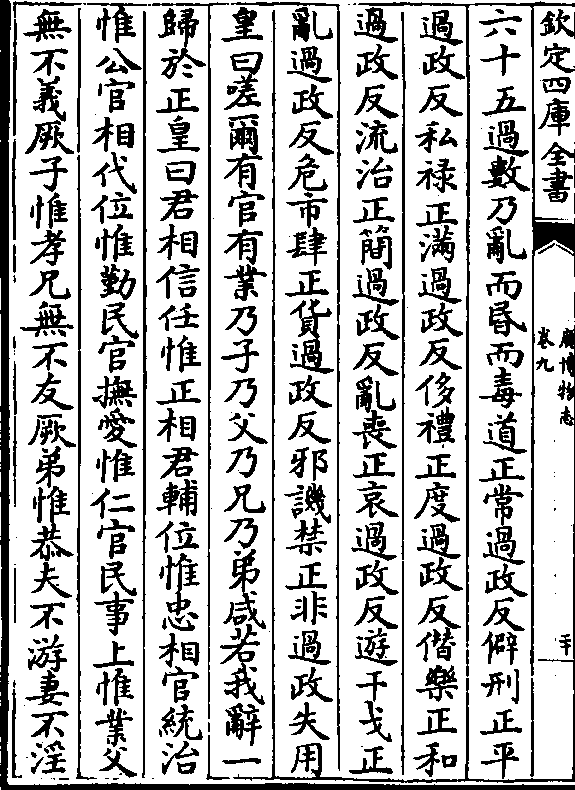 欽定四庫全書
廣博物志
卷九
二十
六十五過數乃亂而昬而毒道正常過政反僻刑正平
過政反私禄正滿過政反侈禮正度過政反僣樂正和
過政反流治正簡過政反亂喪正哀過政反遊干戈正
亂過政反危市肆正貨過政反邪譏禁正非過政失用
皇曰嗟爾有官有業乃子乃父乃兄乃弟咸若我辭一
歸於正皇曰君相信任惟正相君輔位惟忠相官統治
惟公官相代位惟勤民官撫愛惟仁官民事上惟業父
無不義厥子惟孝兄無不友厥弟惟恭夫不游妻不淫